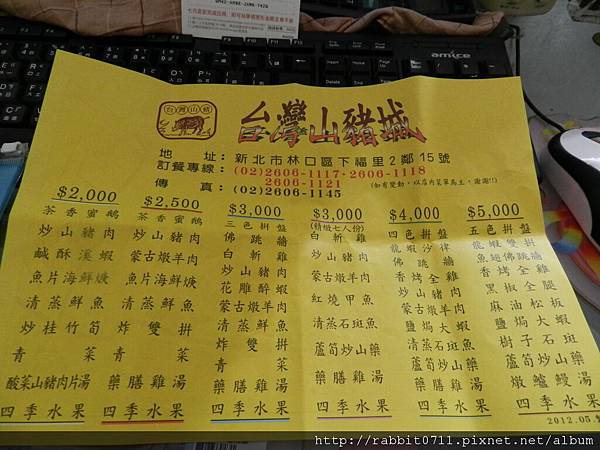 台灣山豬
台灣山豬城
地 址：新北市林口區下福里2鄰15號
訂餐專線：(02)2606-1117·2606-1118
2606-1121
傳 真：(02)2606-1145
(如有變動，以店內菜單為主，謝謝!!)
$2,000
茶香蜜鵝
炒山豬肉
鹹酥溪蝦
魚片海鮮焿
清蒸鮮魚
炒桂竹筍
青菜
酸菜山豬肉片湯
四季水果
$2,500
茶香蜜鵝
炒山豬肉
蒙古燉羊肉
魚片海鮮焿
清蒸鮮魚
炸雙拼
青菜
藥膳雞湯
四季水果
$3,000
三色拼盤
佛跳牆
白斬雞
炒山豬肉
花雕醉蝦
蒙古燉羊肉
清蒸鮮魚
炸雙拼
青菜
藥膳雞湯
四季水果
$3,000
(精緻七人份)
白斬雞
炒山豬肉
蒙古燉羊肉
紅燒甲魚
清蒸石斑魚
蘆筍炒山藥
藥膳雞湯
四季水果
$4,000
四色拼盤
龍蝦沙律
佛跳牆
香烤全雞
炒山豬肉
蒙古燉羊肉
鹽焗大蝦
清蒸石斑魚
蘆筍炒山藥
藥膳雞湯
四季水果
$5,000
五色拼盤
龍蝦雙拼
魚翅佛跳牆
香烤全雞
黑椒全腿
麻油松板
鹽焗大蝦
樹子石斑
蘆筍炒山藥
燉鱸鰻湯
四季水果
2012.05.
amice
http://rabbit0711.pixnet.net/album